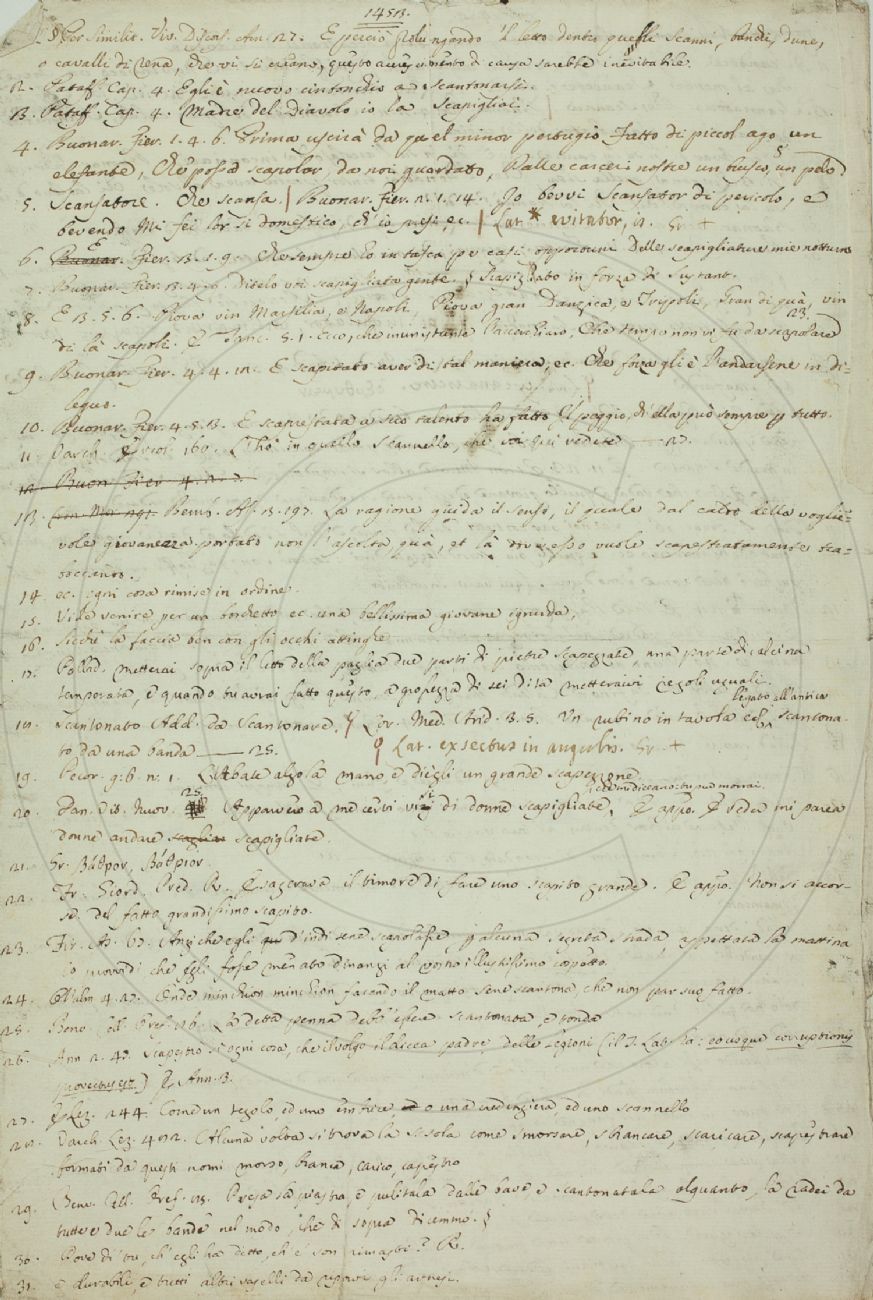 1453.
§ Per Similit. Viv. Disc. Arn. 27. E perciò prolungando il letto dentro quelli scanni, bandi, dune,
o cavalli di rena, che vi si creano, questo accrescimento di causa sarebbe inevitabile.
2. Pataff. Cap. 4. Egli è nuovo cintonchio a scantonarsi.
3. Pataff. Cap. 4. Madre del Diavolo io la scapigliai.
4. Buonar. Fier. 1. 4. 6. Prima uscirà da quel minor pertugio Fatto di piccol ago un
elefante, Che possa scapolar, da noi guardato, Dalle carceri nostre un busco, un pelo
5. Scansatore. Che scansa. Buonar. Fier. 2. 1. 14. Io bevvi Scansator di pericolo, e
bevendo Mi fei lor sì domestico, ch'io presi, ec. Lat. * evitator, is. Gr. +
6. E Fier. 3. 1. 9. Che sempre ho in tasca per casi opportuni Delle scapigliature mie notturne
7. Buonar. Fier. 3. 4. 6. Ditelo voi scapigliata gente. § Scapigliato in forza di Sustant.
8. E 3. 5. 6. Trova vin Marsilia, e Napoli, Trova gran Danzica, e Tripoli, Gran di quà, vin
di là scapoli. E 5. 1. Ecco, che Che tempo non vi fu da scapolare 23.
9. Buonar. Fier. 4. 4. 12. E scapitato aver di tal maniera, ec. Che forza gli è l'andarsene in di-
leguo.
10. Buonar. Fier. 4. 5. 3. E scapestrata a suo talento ha fatto Il peggio, ch'ella può sempre p tutto.
11. Varch. Ercol. 160. L'hò in quello scannello, che voi qui vedete — 27.
12. Buon. Fier. 4.
13. Bemb. As. 3. 197. La ragione guida il senso, il quale dal calro della voglie-
vole giovanezza portato non l'ascolta quà, et là dove esso vuole scapestratamente tra-
boccando.
14. ec. ogni cosa rimise in ordine.
15. Vide venire per un boschetto ec. una bellissima giovane ignuda,
16. Sicchè la faccia ben con gli occhi attinghe
17. Pallad. metterai sopra il letto della paglia due parti di pietre scapezzate, una parte di calcina
temperata, e quando tu avrai fatto questo, a grossezza di sei dita metteraivi regoli uguali.
18. Scantonato Add. da Scantonare. § Lor. Med. Arid. 3. 5. Un rubino in tavola legato all'antica scantona-
to da una banda — 25. § Lat. exsectus in angulis. Gr. +
19. Pecor. g. 6. n. 1. L'Abate alzò la mano, e diegli un grande scapezzone.
20. Dan. Vit. Nuov. 25. Apparvero a me certi visi di donne scapigliate, che mi diceano: tu pur morrai. E appr. E veder mi parea
donne andare scapigliate.
21. Gr. Βάθρον, Βάθριον.
22. Fr. Giord. Pred. R. Esagerava il timore di fare uno scapito grande. E appr. Non si accor-
se del fatto grandissimo scapito.
23. Fir. As. 67. Anzi che egli d'indi sene scapolasse p alcuna segreta strada, aspettata la mattina
io providi che egli fosse menato dinanzi al vostro illustrissimo cospetto.
24. Malm. 4. 27. Onde minchion minchion facendo il matto Sene scantona, che non par suo fatto.
25. Benv. Cell. Oref. 26. La detta penna debb'essere scantonata, e tonda
26. Ann. 2. 47. Scapestrò ogni cosa, che il volgo il dicea padre delle legioni (il T. Lat. ha: eo usque corruptionis
provectus est.) E Ann. 3.
27. E Lez. 244. Come un regolo, ed uno embrice, o una credenziera, ed uno scannello
28. Varch. Lez. 492. Alcuna volta si trova la S sola come smorsare, sbrancare, scaricare, scapestrare
formati da questi nomi morso, branca, carico, capestro
29. Benv. Cell. Oref. 18. Presa la piastra, e pulitala dalle bave e scantonatala alquanto, la radei da
tutte e due le bande nel modo, che di sopra dicemmo. §
30. Dove di tu, ch'egli ha detto, ch'e' son rimasti? R.
31. e durabili, e tutti altri vaselli da riporre gli arnesi.